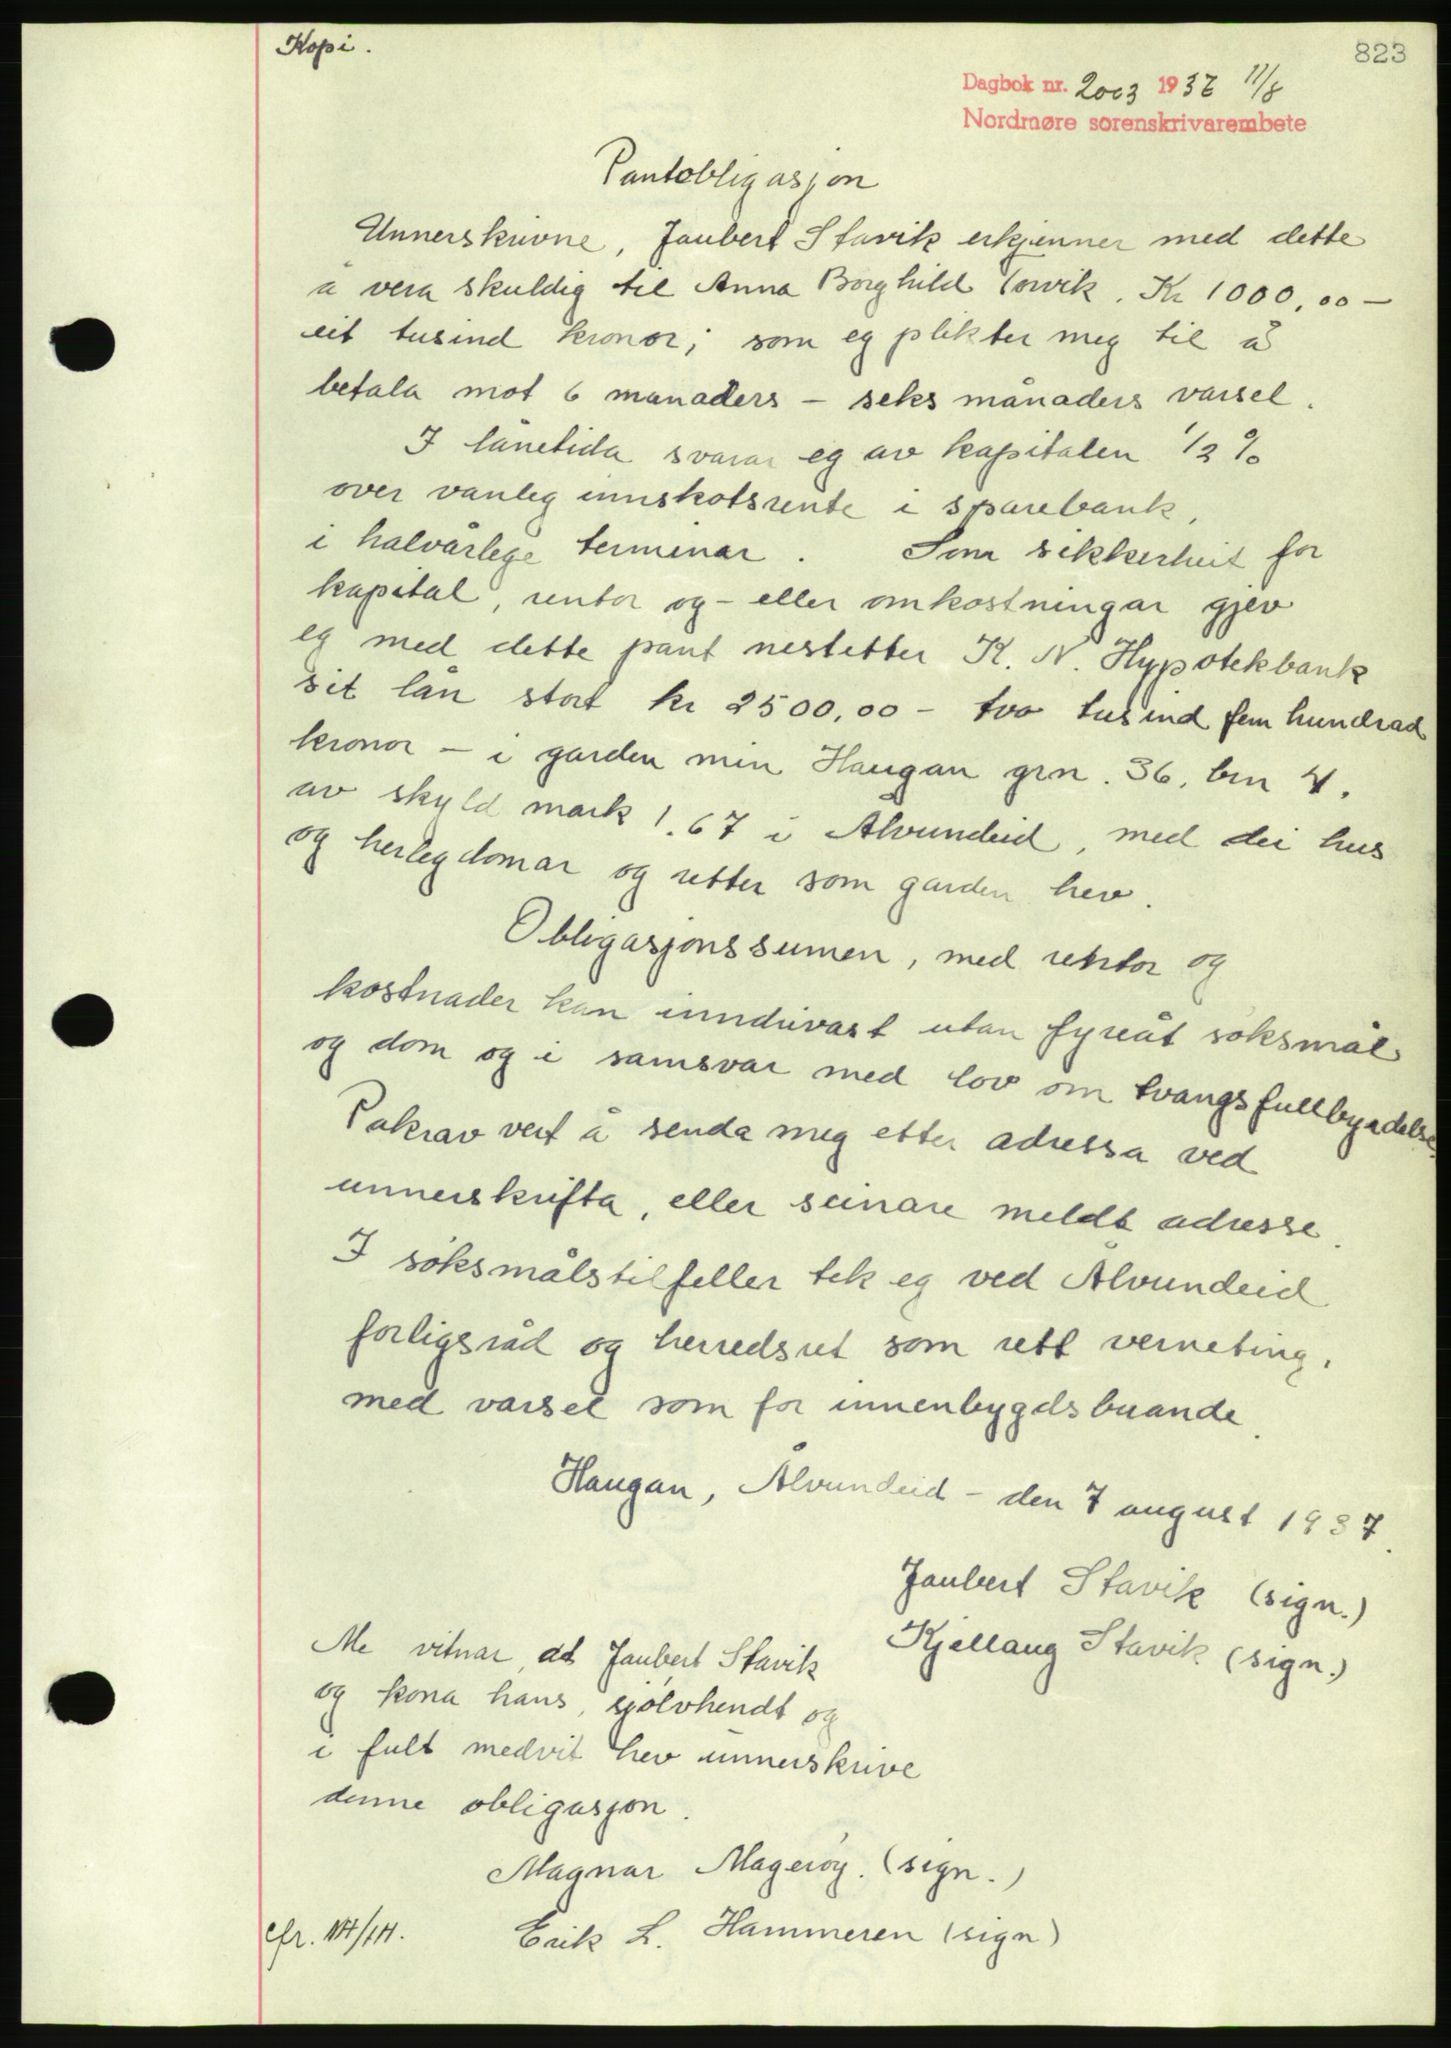 Kopi.
823
Dagbok nr. 2003 1937 11/8
Nordmøre sorenskrivarembete
Pantobligasjon
Unnerskrivne, Jaubert Stavik erkjenner med dette
å vera skuldig til Anna Borghild Torvik. Kr 1000,00 –
eit tusind kronor; som eg plikter meg til å
betala mot 6 manaders – seks månaders varsel.
I lånetida svarar eg av kapitalen 1/2 %
over vanleg innskotsrente i sparebank,
i halvårlege terminar. Som sikkerheit for
kapital, rentor og – eller omkostningar gjev
eg med dette pant nestetter K. N. Hypotekbank
sit lån stort kr 2500,00 – tvo tusind fem hundrad
kronor – i garden min Haugan grn. 36, brn 4.
av skyld mark 1.67 i Ålvundeid, med dei hus
og herlegdomar og retter som garden hev.
Obligasjonssumen, med rentor og
kostnader kan inndrivast utan fyreåt søksmål
og dom og i samsvar med lov om tvangsfullbyrdelse.
Påkrav vert å senda meg etter adressa ved
unnerskrifta, eller seinare meldt adresse.
I søksmålstilfeller tek eg ved Ålvundeid
forligsråd og herredsret som rett verneting,
med varsel som for innenbygdsbuande.
Haugan, Ålvundeid – den 7 august 1937.
Jaubert Stavik (sign.)
Kjellaug Stavik (sign.)
Me vitnar, at Jaubert Stavik
og kona hans, sjølvhendt og
i fult medvit hev unnerskrive
denne obligasjon.
Magnar Magerøy. (sign.)
Erik L. Hammeren (sign)
cfr.